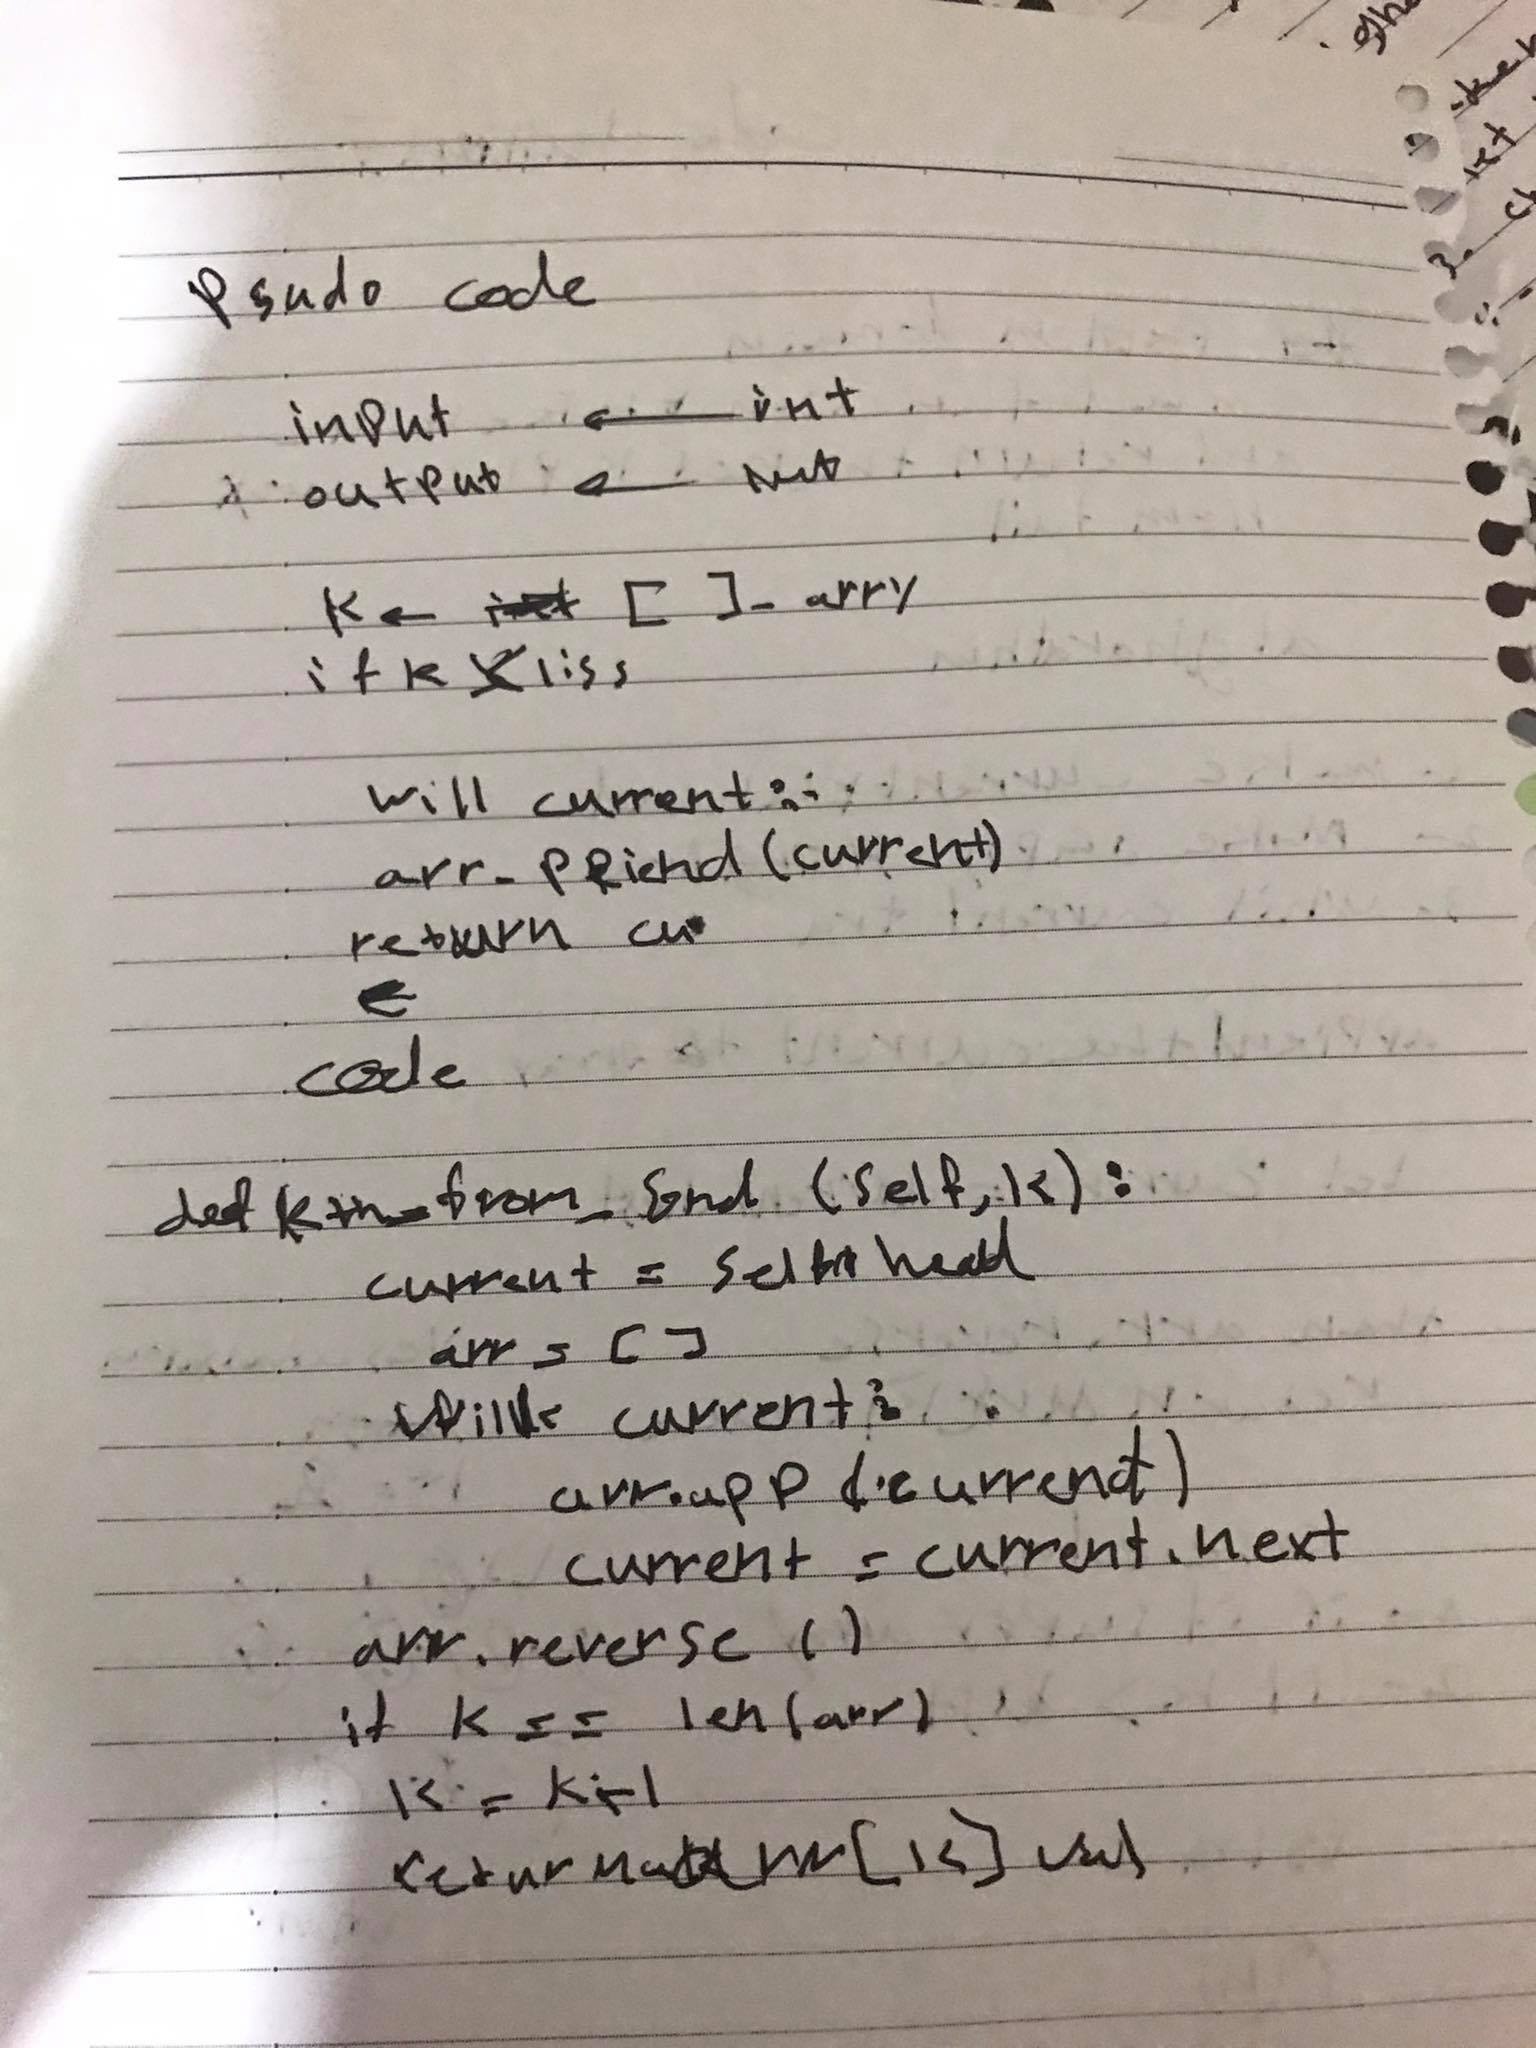 Psudo code
input ← int
output ←
K ← [ ] - arry
if k liss
will current :
arr- ppiend (current)
return cu
code
def kth_from_End (self, k) :
current = self head
arr = [ ]
current :
arr.app (current)
current = current.next
arr.reverse ()
if k == len(arr)
k = k-1
retur arr[k] val